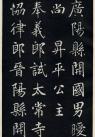 廣陽縣開國男曖
尚昇平公主
奉義郎試太常寺
協律郎晉陽縣開